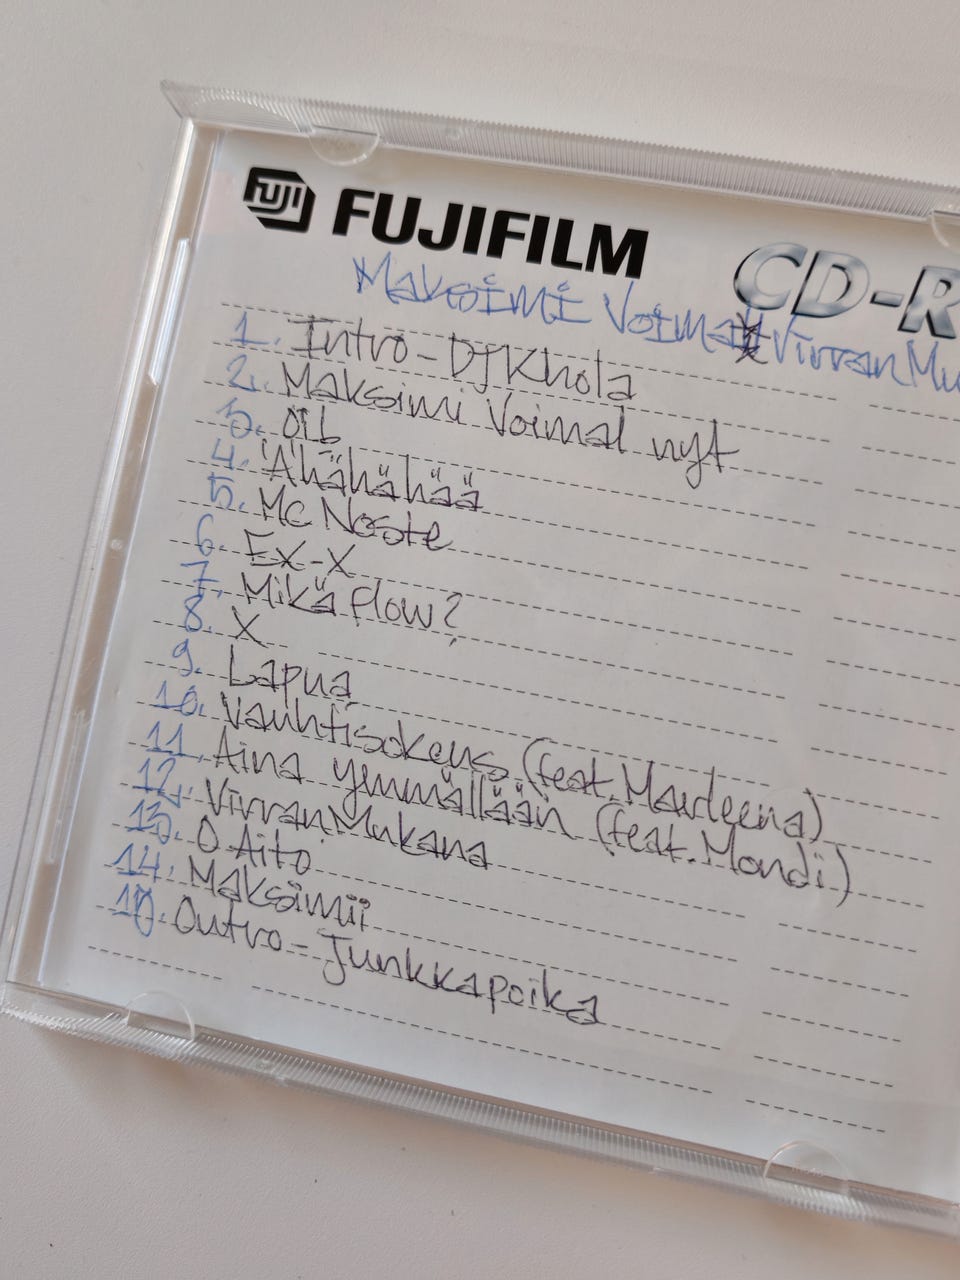 FUJI FUJIFILM CD-R
Maksimi Voima Virran Mu
1. Intro - DJ Khola
2. Maksimi Voimal nyt
3. ÖIL
4. Ähähähää
5. Mc Noste
6. Ex-X
7. Mikä flow?
8. X
9. Lapua
10. Vauhtisokeus (feat. Marleena)
11. Aina ymmällään (feat. Mondi)
12. Virran Mukana
13. O Aito
14. Maksimii
15. Outro - Junkkapoika